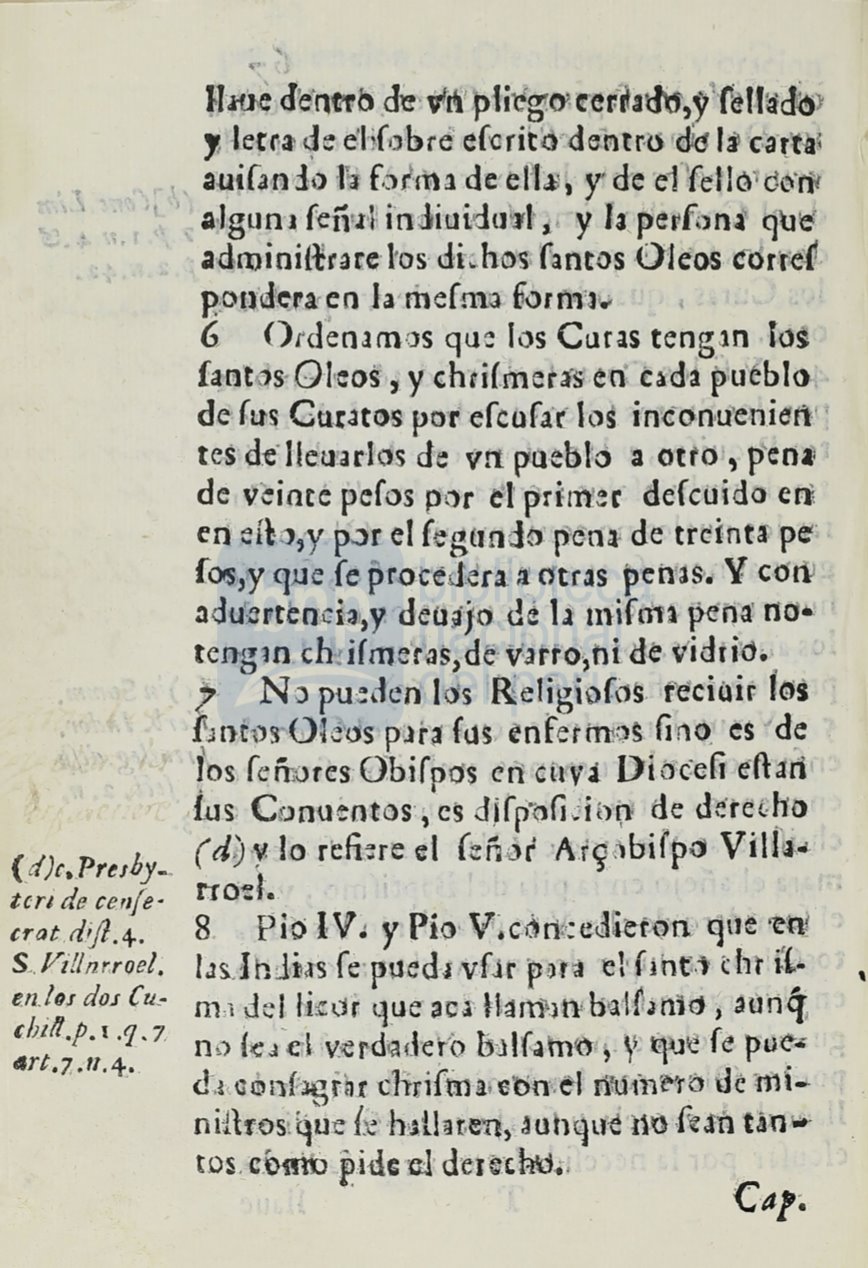 llaue dentro de vn pliego cerrado,y ſellado
y letra de el ſobre eſcrito dentro de la carta
auiſando la forma de ella, y de el ſello con
alguna ſeñal indiuidual, y la perſona que
adminiſtrare los dichos ſantos Oleos correſ
pondera en la meſma forma.
6 Ordenamos que los Curas tengan los
ſantos Oleos, y chriſmeras en cada pueblo
de ſus Curatos por eſcuſar los inconuenien
tes de lleuarlos de vn pueblo a otro, pena
de veinte peſos por el primer deſcuido en
en eſto,y por el ſegundo pena de treinta pe
ſos,y que ſe procedera a otras penas. Y con
aduertencia,y deuajo de la miſma pena no-
tengan chriſmeras,de varro,ni de vidrio.
7 No pueden los Religioſos reciuir los
ſantos Oleos para ſus enfermos ſino es de
los ſeñores Obiſpos en cuya Dioceſi eſtan
ſus Conuentos, es diſpoſicion de derecho
(d) y lo refiere el ſeñor Arçobiſpo Villa-
rroel.
(d)c.Presby-
teri de cenſe-
crat diſt.4.
S. Villnrroel.
en los dos Cu-
chill.p.1.q.7
art.7.n.4.
8 Pio IV. y Pio V.concedieron que en
las Indias ſe pueda vſar para el ſanto chriſ-
ma del licor que aca llaman balſamo, aunq̃
no ſea el verdadero balſamo, y que ſe pue-
da conſagrar chriſma con el numero de mi-
niſtros que ſe hallaren, aunque no ſean tan-
tos como pide el derecho.
Cap.